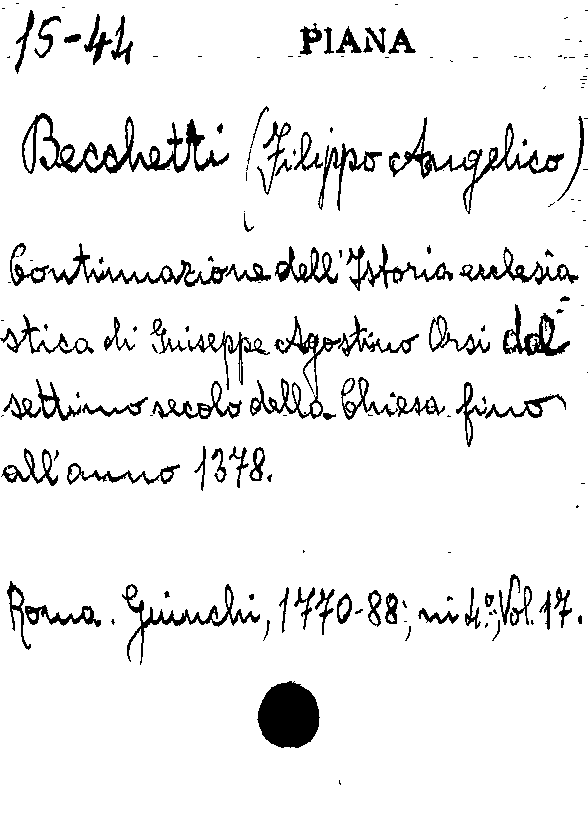 15-44 PIANA
Becchetti (Filippo Angelico)
Continuazione dell'Istoria ecclesia
stica di Giuseppe Agostino Orsi dal
settimo secolo della Chiesa fino
all'anno 1378.
Roma. Giunchi, 1770-88; in 4º; Vol. 17.